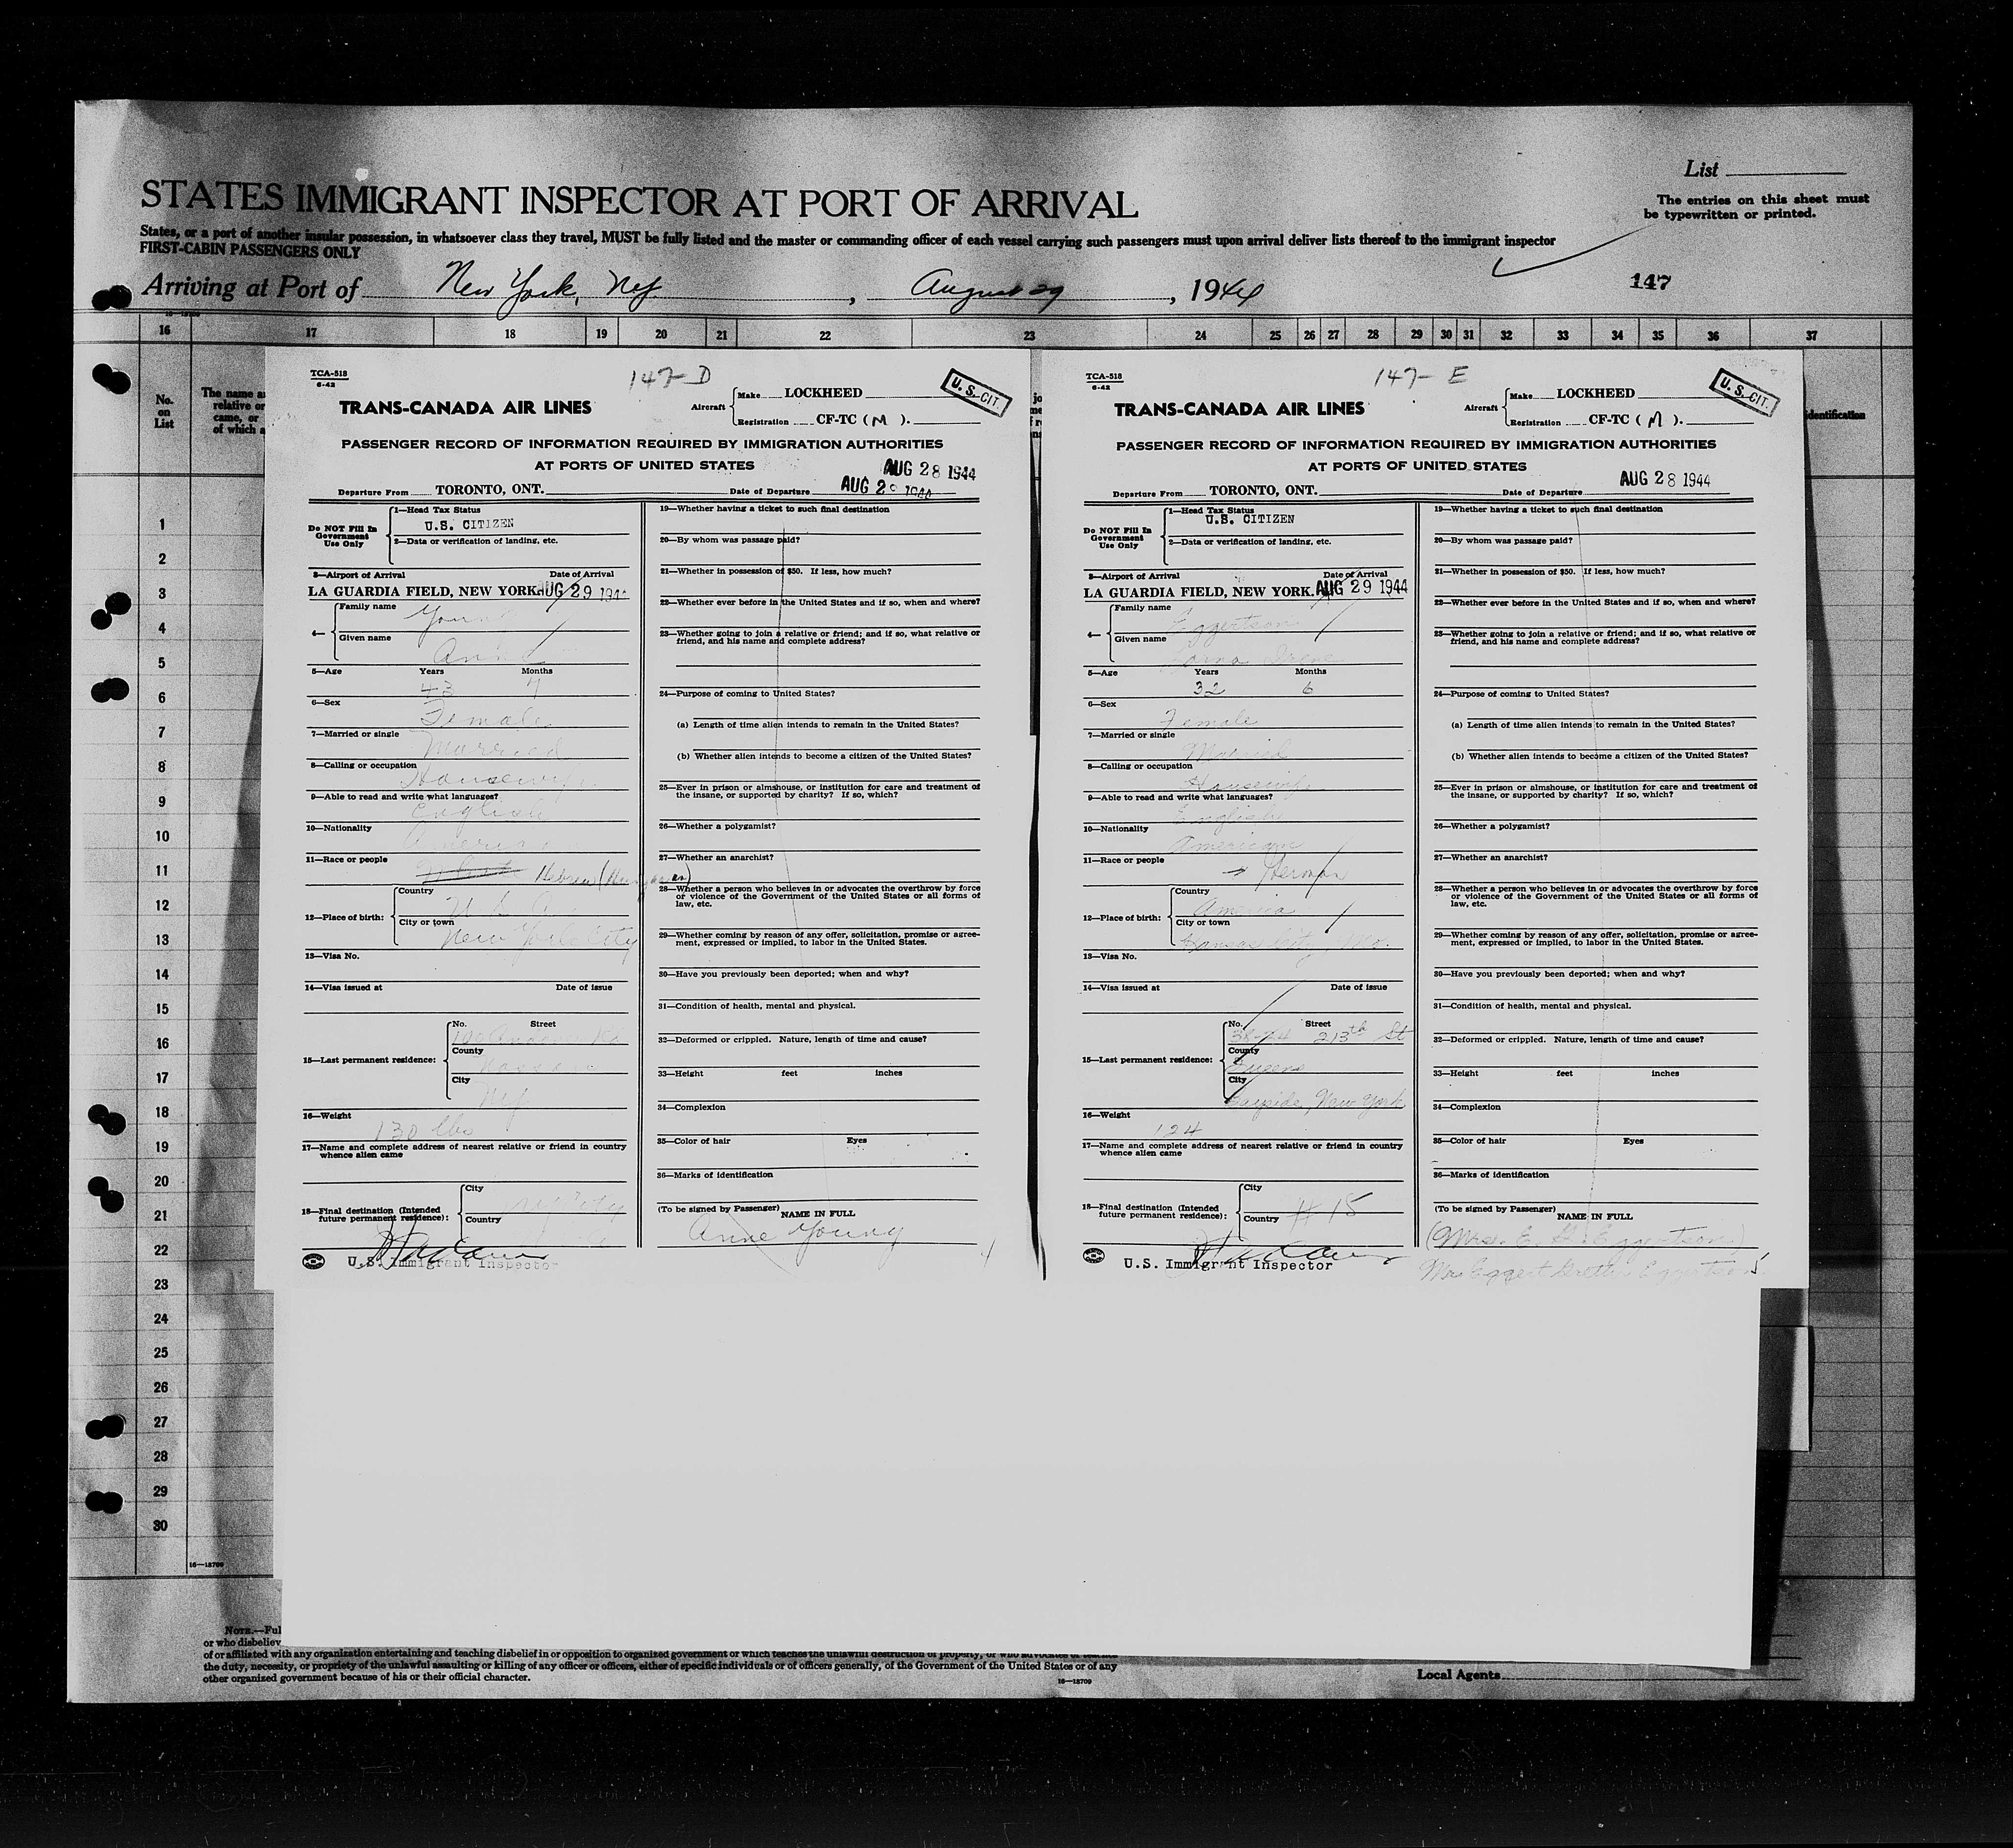 List
The entries on this sheet must
be typewritten or printed.
STATES IMMIGRANT INSPECTOR AT PORT OF ARRIVAL
States, or a port of another insular possession, in whatsoever class they travel, MUST be fully listed and the master or commanding officer of each vessel carrying such passengers must upon arrival deliver lists thereof to the immigrant inspector
FIRST-CABIN PASSENGERS ONLY
Arriving at Port of New York, Ny. , August 29 , 1944
147
16 17 18 19 20 21 22 23 24 25 26 27 28 29 30 31 32 33 34 35 36 37
No.
on
List
The name a
relative or
came, or
of which a
identification
1
2
3
4
5
6
7
8
9
10
11
12
13
14
15
16
17
18
19
20
21
22
23
24
25
26
27
28
29
30
16—13709
TCA-518
6-42
147-D
U.S. CIT.
TRANS-CANADA AIR LINES
Aircraft
Make LOCKHEED
Registration CF-TC (M).
PASSENGER RECORD OF INFORMATION REQUIRED BY IMMIGRATION AUTHORITIES
AT PORTS OF UNITED STATES
AUG 28 1944
Departure From TORONTO, ONT. Date of Departure AUG 2 1944
Do NOT Fill In
Government
Use Only
1—Head Tax Status
U.S. CITIZEN
2—Data or verification of landing, etc.
3—Airport of Arrival Date of Arrival
LA GUARDIA FIELD, NEW YORK. AUG 29 1944
4— Family name
Young
Given name
5—Age Years Months
43 7
6—Sex
Female
7—Married or single
Married
8—Calling or occupation
Housewife
9—Able to read and write what languages?
English
10—Nationality
American
11—Race or people
Hebrew (Hungarian)
12—Place of birth: Country
City or town
New York City
13—Visa No.
14—Visa issued at Date of issue
15—Last permanent residence: No. Street
County
City
16—Weight
130 lbs
17—Name and complete address of nearest relative or friend in country
whence alien came
18—Final destination (Intended
future permanent residence): City
Country
U.S. Immigrant Inspector
19—Whether having a ticket to such final destination
20—By whom was passage paid?
21—Whether in possession of $50. If less, how much?
22—Whether ever before in the United States and if so, when and where?
23—Whether going to join a relative or friend; and if so, what relative or
friend, and his name and complete address?
24—Purpose of coming to United States?
(a) Length of time alien intends to remain in the United States?
(b) Whether alien intends to become a citizen of the United States?
25—Ever in prison or almshouse, or institution for care and treatment of
the insane, or supported by charity? If so, which?
26—Whether a polygamist?
27—Whether an anarchist?
28—Whether a person who believes in or advocates the overthrow by force
or violence of the Government of the United States or all forms of
law, etc.
29—Whether coming by reason of any offer, solicitation, promise or agree-
ment, expressed or implied, to labor in the United States.
30—Have you previously been deported; when and why?
31—Condition of health, mental and physical.
32—Deformed or crippled. Nature, length of time and cause?
33—Height feet inches
34—Complexion
35—Color of hair Eyes
36—Marks of identification
(To be signed by Passenger) NAME IN FULL
Anne Young
4
TCA-518
6-42
147-E
U.S. CIT.
TRANS-CANADA AIR LINES
Aircraft
Make LOCKHEED
Registration CF-TC (M).
PASSENGER RECORD OF INFORMATION REQUIRED BY IMMIGRATION AUTHORITIES
AT PORTS OF UNITED STATES
Departure From TORONTO, ONT. Date of Departure AUG 28 1944
Do NOT Fill In
Government
Use Only
1—Head Tax Status
U.S. CITIZEN
2—Data or verification of landing, etc.
3—Airport of Arrival Date of Arrival
LA GUARDIA FIELD, NEW YORK. AUG 29 1944
4— Family name
Eggertson
Given name
Irene
5—Age Years Months
32 6
6—Sex
Female
7—Married or single
Married
8—Calling or occupation
Housewife
9—Able to read and write what languages?
English
10—Nationality
American
11—Race or people
German
12—Place of birth: Country
America
City or town
Kansas City, Mo.
13—Visa No.
14—Visa issued at Date of issue
15—Last permanent residence: No. Street
213th St
County
Queens
City
Bayside, New York
16—Weight
124
17—Name and complete address of nearest relative or friend in country
whence alien came
18—Final destination (Intended
future permanent residence): City
Country # 15
U.S. Immigrant Inspector
19—Whether having a ticket to such final destination
20—By whom was passage paid?
21—Whether in possession of $50. If less, how much?
22—Whether ever before in the United States and if so, when and where?
23—Whether going to join a relative or friend; and if so, what relative or
friend, and his name and complete address?
24—Purpose of coming to United States?
(a) Length of time alien intends to remain in the United States?
(b) Whether alien intends to become a citizen of the United States?
25—Ever in prison or almshouse, or institution for care and treatment of
the insane, or supported by charity? If so, which?
26—Whether a polygamist?
27—Whether an anarchist?
28—Whether a person who believes in or advocates the overthrow by force
or violence of the Government of the United States or all forms of
law, etc.
29—Whether coming by reason of any offer, solicitation, promise or agree-
ment, expressed or implied, to labor in the United States.
30—Have you previously been deported; when and why?
31—Condition of health, mental and physical.
32—Deformed or crippled. Nature, length of time and cause?
33—Height feet inches
34—Complexion
35—Color of hair Eyes
36—Marks of identification
(To be signed by Passenger) NAME IN FULL
(Mrs. E. G. Eggertson)
Mrs Eggert Eggertson
5
NOTE.—Ful
or who disbeliev
of or affiliated with any organization entertaining and teaching disbelief in or opposition to organized government or which teaches the unlawful destruction of property, or who advocates or teaches
the duty, necessity, or propriety of the unlawful assaulting or killing of any officer or officers, either of specific individuals or of officers generally, of the Government of the United States or of any
other organized government because of his or their official character.
16—13709
Local Agents